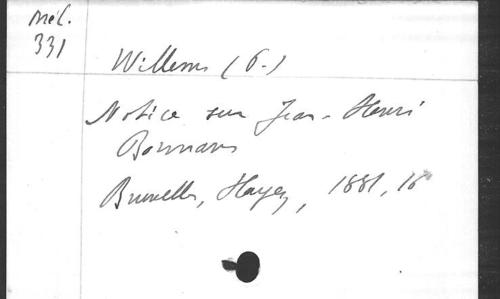 Mél.
331
Willems (P.)
Notice sur Jean-Henri
Bormans
Bruxelles, Hayez, 1881, 16°